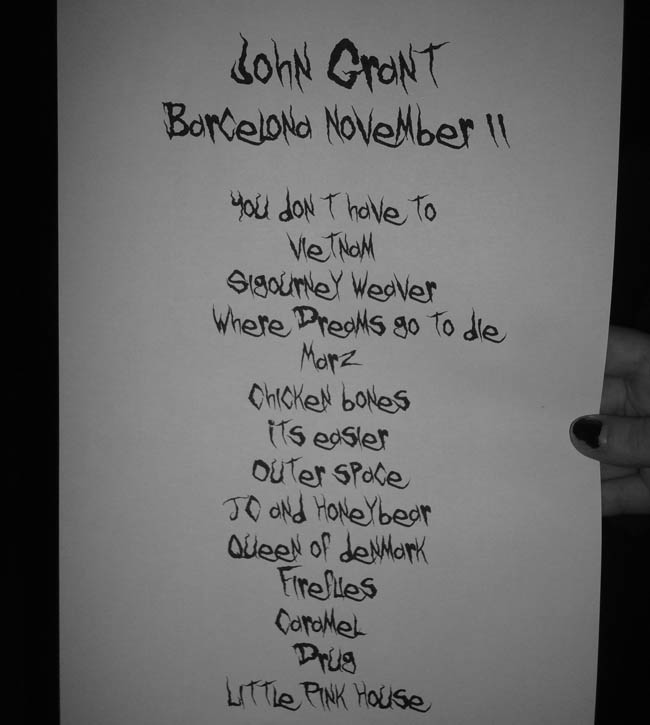 John Grant
Barcelona November 11
you don t have to
Vietnam
Sigourney Weaver
Where Dreams go to die
Marz
Chicken bones
its easier
Outer Space
JC and Honeybear
Queen of denmark
Fireflies
Caramel
Drug
Little Pink House